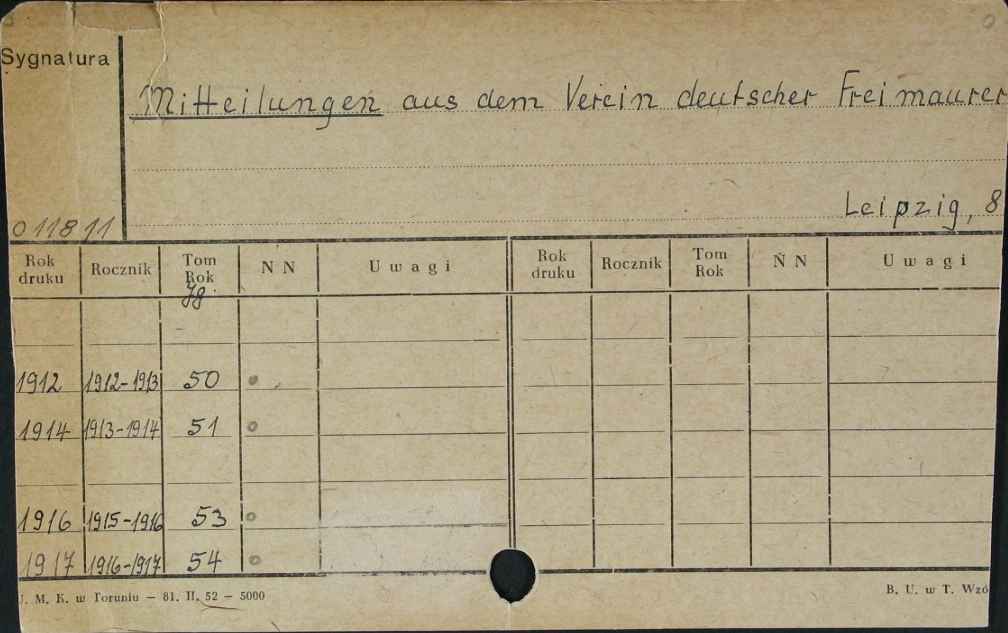 Sygnatura
Mitteilungen aus dem Verein deutscher Freimaurer
Leipzig, 8
011811
Rok druku Rocznik Tom Rok N N Uwagi Rok druku Rocznik Tom Rok N N Uwagi
Jg
1912 1912-1913 50
1914 1913-1914 51
1916 1915-1916 53
1917 1916-1917 54
U. M. K. w Toruniu — 81. II. 52 — 5000
B. U. w T. Wzó